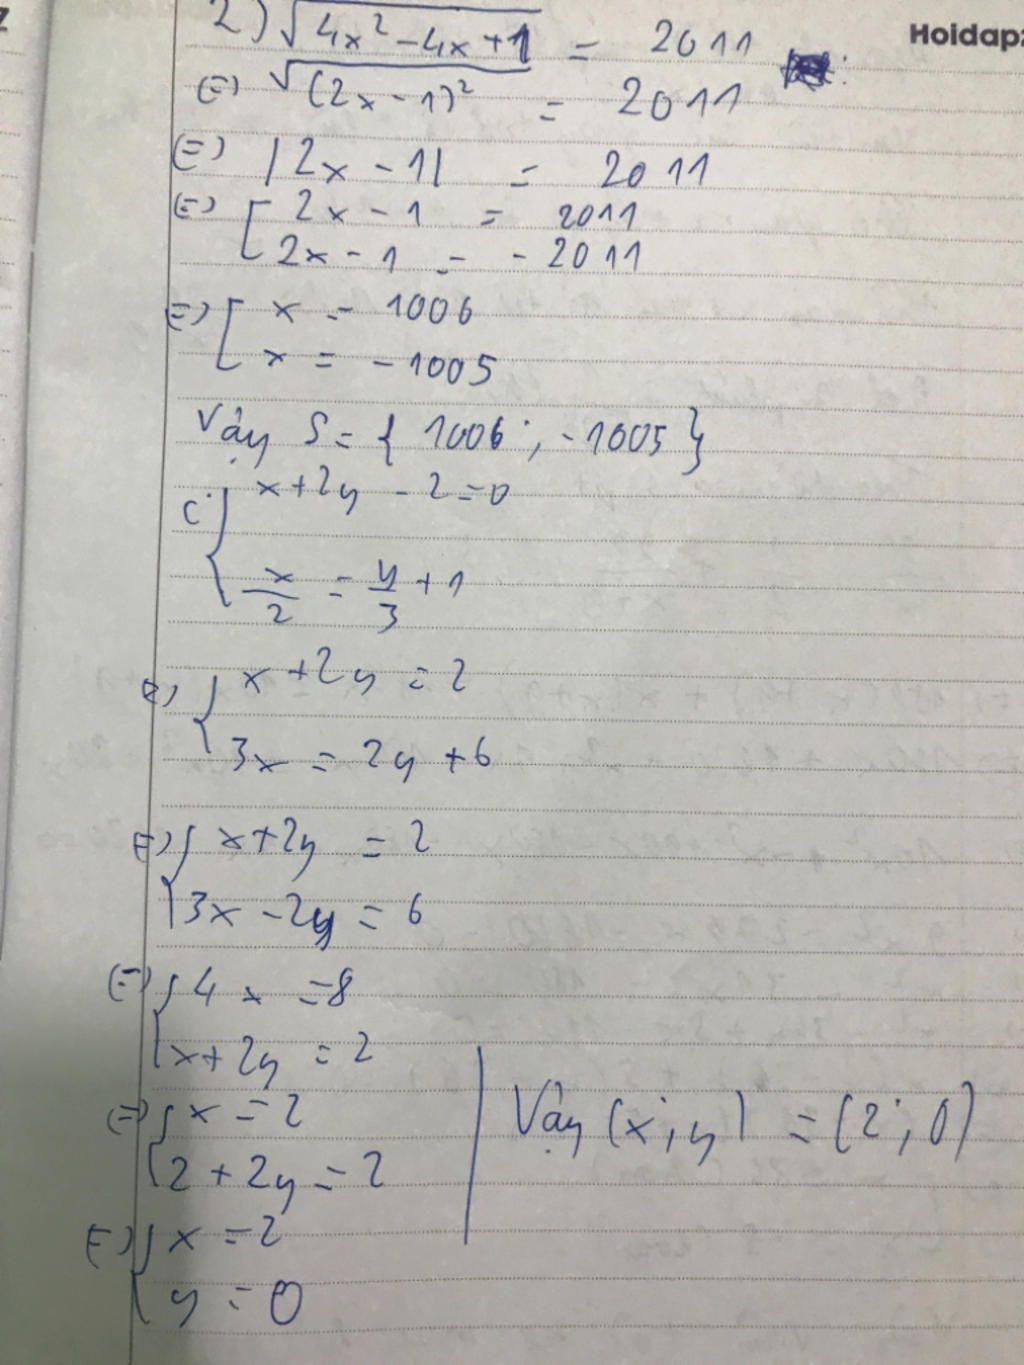 z
Hoidapz
2) √4x² - 4x + 1 = 2011
(=) √(2x - 1)² = 2011
(=) |2x - 1| = 2011
(=) [ 2x - 1 = 2011
2x - 1 = - 2011
(=) [ x = 1006
x = - 1005
Vậy S = { 1006 ; - 1005 }
c { x + 2y - 2 = 0
x/2 = y/3 + 1
(=) { x + 2y = 2
3x = 2y + 6
(=) { x + 2y = 2
3x - 2y = 6
(=) { 4x = 8
x + 2y = 2
(=) { x = 2
2 + 2y = 2
(=) { x = 2
y = 0
Vậy (x ; y) = (2 ; 0)